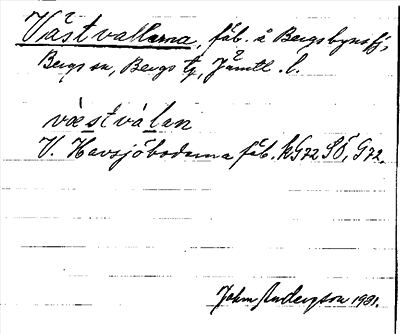 Västvallarna, fäb. å Bergsbyns fj,
Bergs sn, Bergs tg, Jämtl. l.
væstvàlan
V. Havsjöbodarna fäb. kG72 SÖ, G72.
John Anderzson 1931.